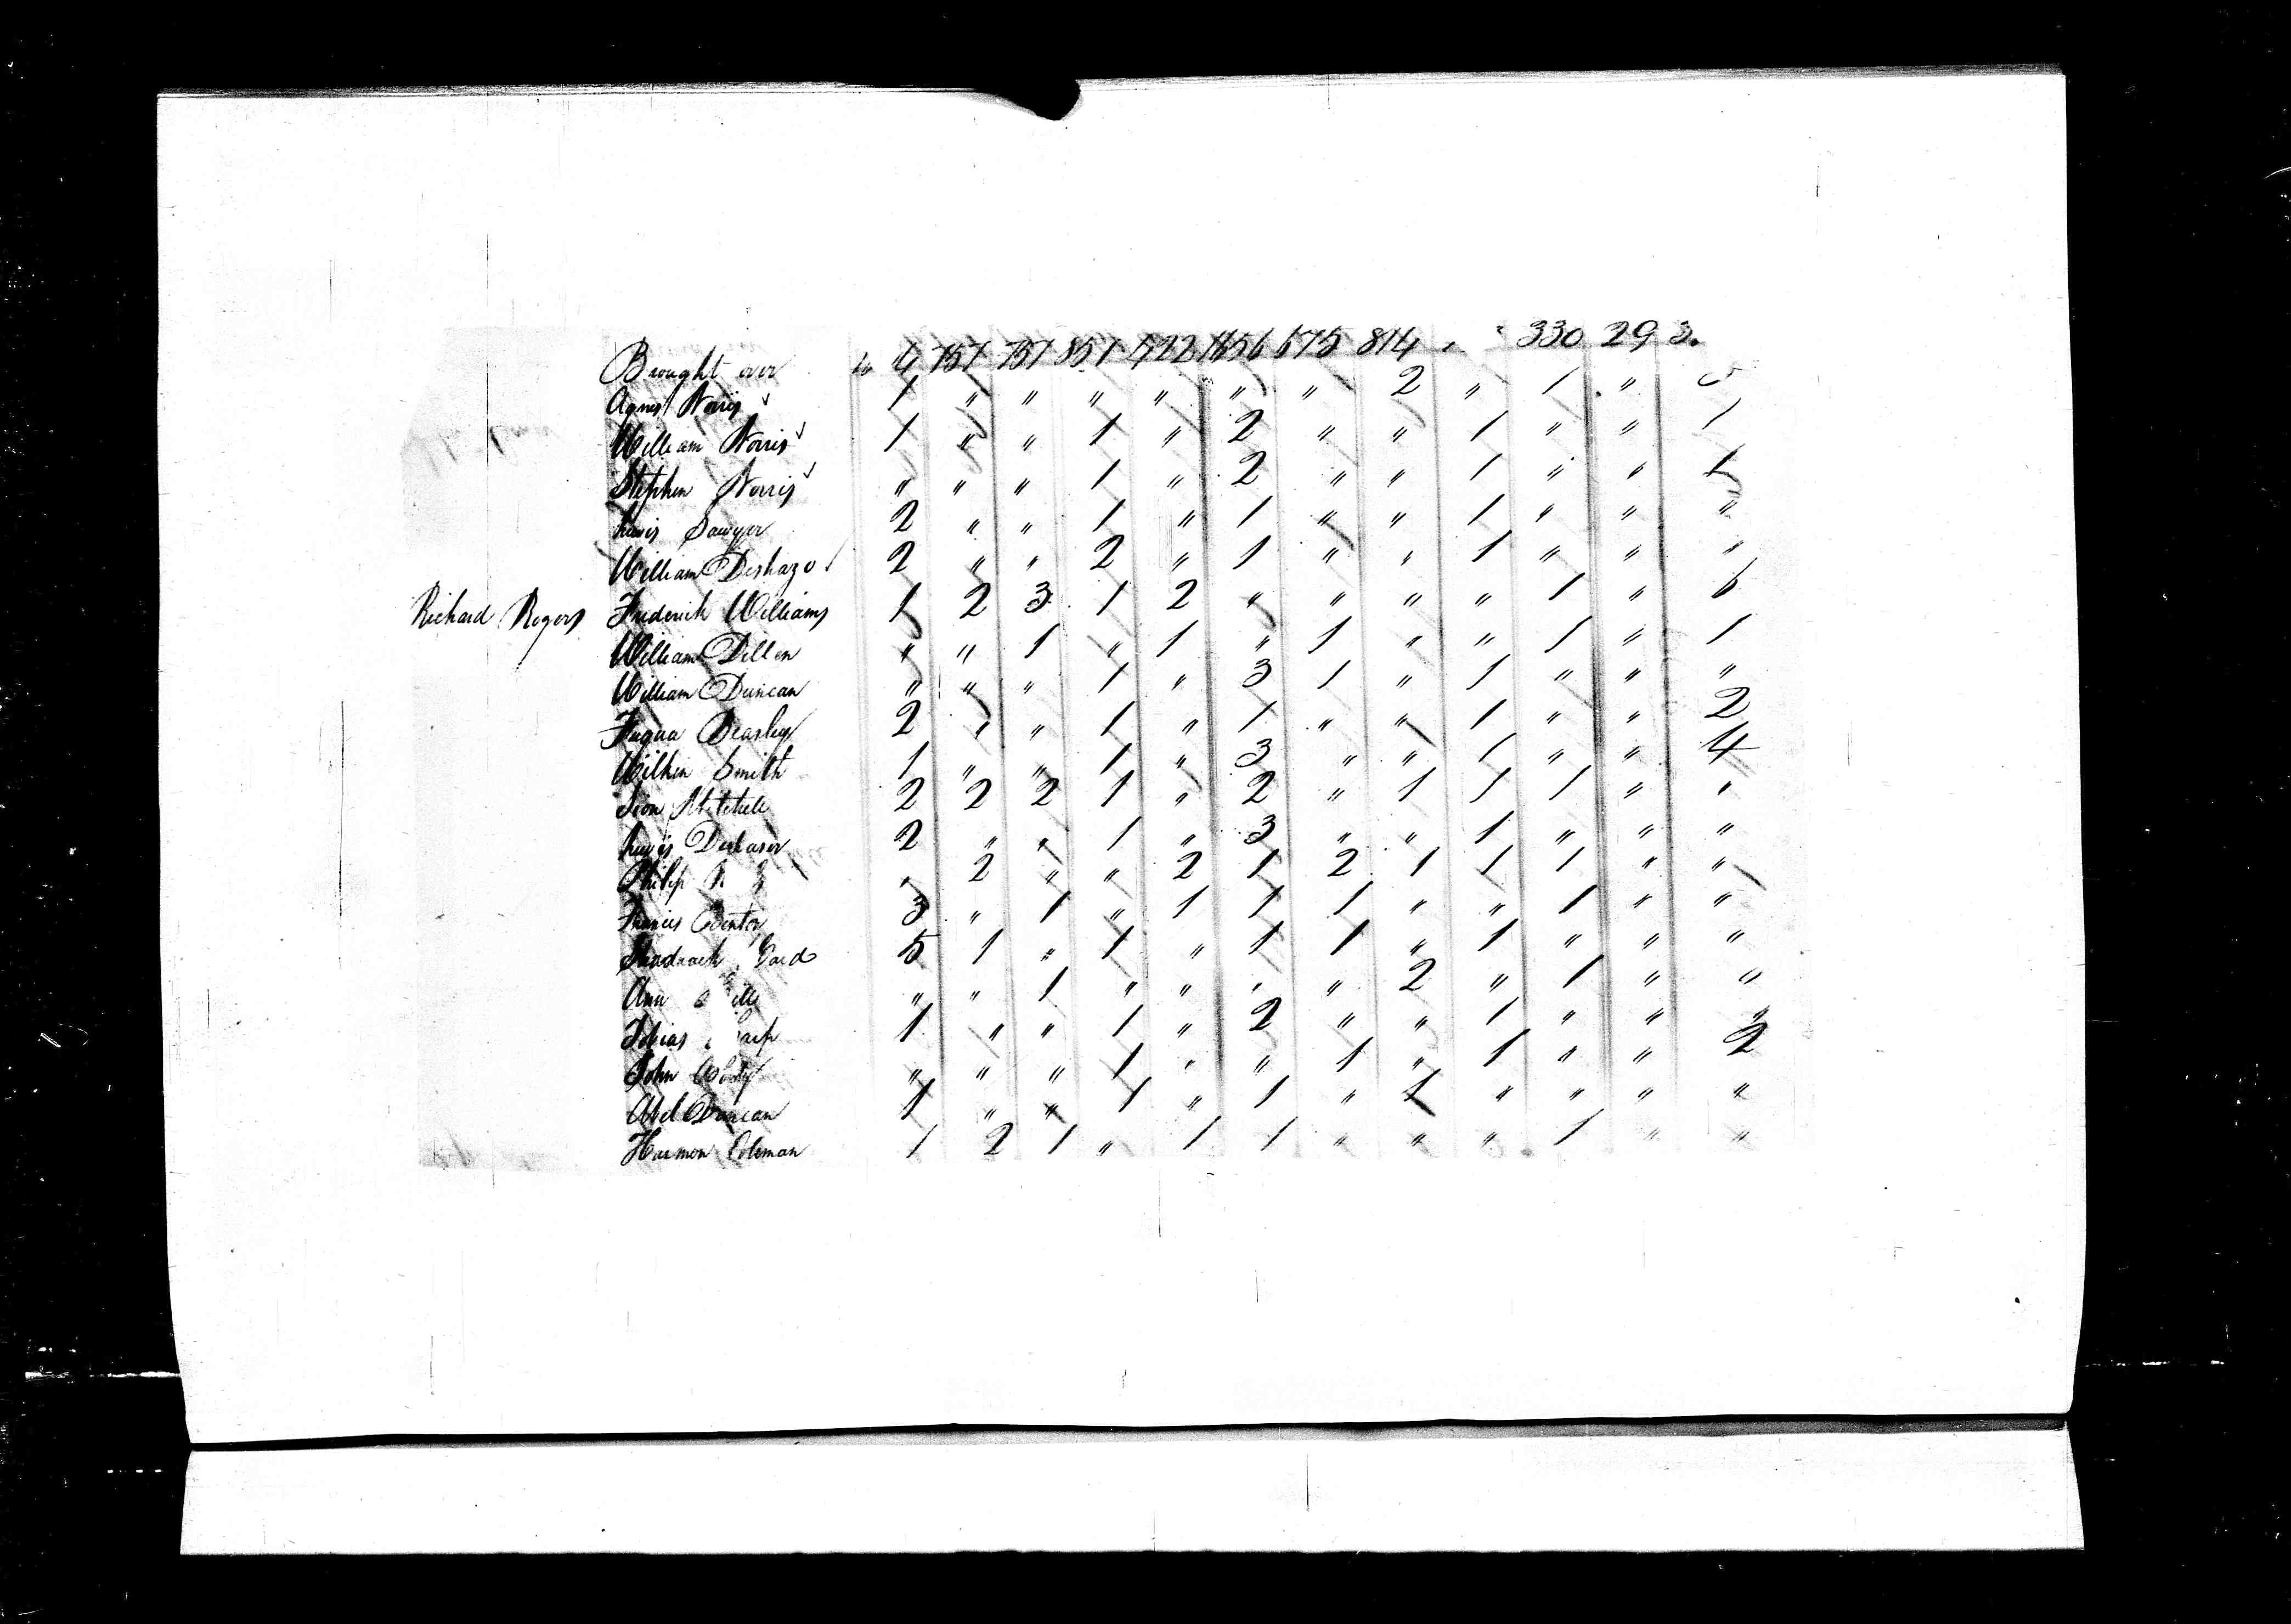 Brought over 751 751 851 722 1656 675 814 330 29 3.
Agnes Norris 1 " " " " " " 2 " 1 " 5
William Norris 1 " " 1 " 2 " " 1 " " 1
Stephen Norris " " " 1 " 2 " " 1 " " 1
Lewis Sawyer 2 " " 1 " 1 " " 1 " " "
William Deshazo 2 " " 2 " 1 " " 1 " " "
Richard Rogers Frederick Williams 1 2 3 1 2 " " " " 1 " 6
William Dillen " " 1 " 1 " 1 " " 1 " 1
William Duncan " " " 1 " 3 1 " 1 " " "
Fuqua Beasley 2 " " 1 " 1 " " 1 " " 2
Wilkin Smith 1 " " 1 " 3 " " 1 " " 4
Sion Mitchell 2 2 2 1 " 2 " 1 1 1 " "
Lewis 2 " " 1 " 3 " " 1 " " "
Philip " 2 " " 2 1 2 1 1 1 " "
Francis 3 " 1 " 1 1 1 " " 1 " "
Shadrach 5 1 " 1 " 1 1 " 1 " " "
Ann " " 1 " " " " 2 " 1 " "
Tobias 1 " " 1 " 2 " " 1 " " "
John " " " 1 " " 1 " 1 " " 2
Abel Duncan 1 " " 1 " 1 " 1 " " " "
Harmon Coleman 1 2 1 " 1 1 " " " 1 " "